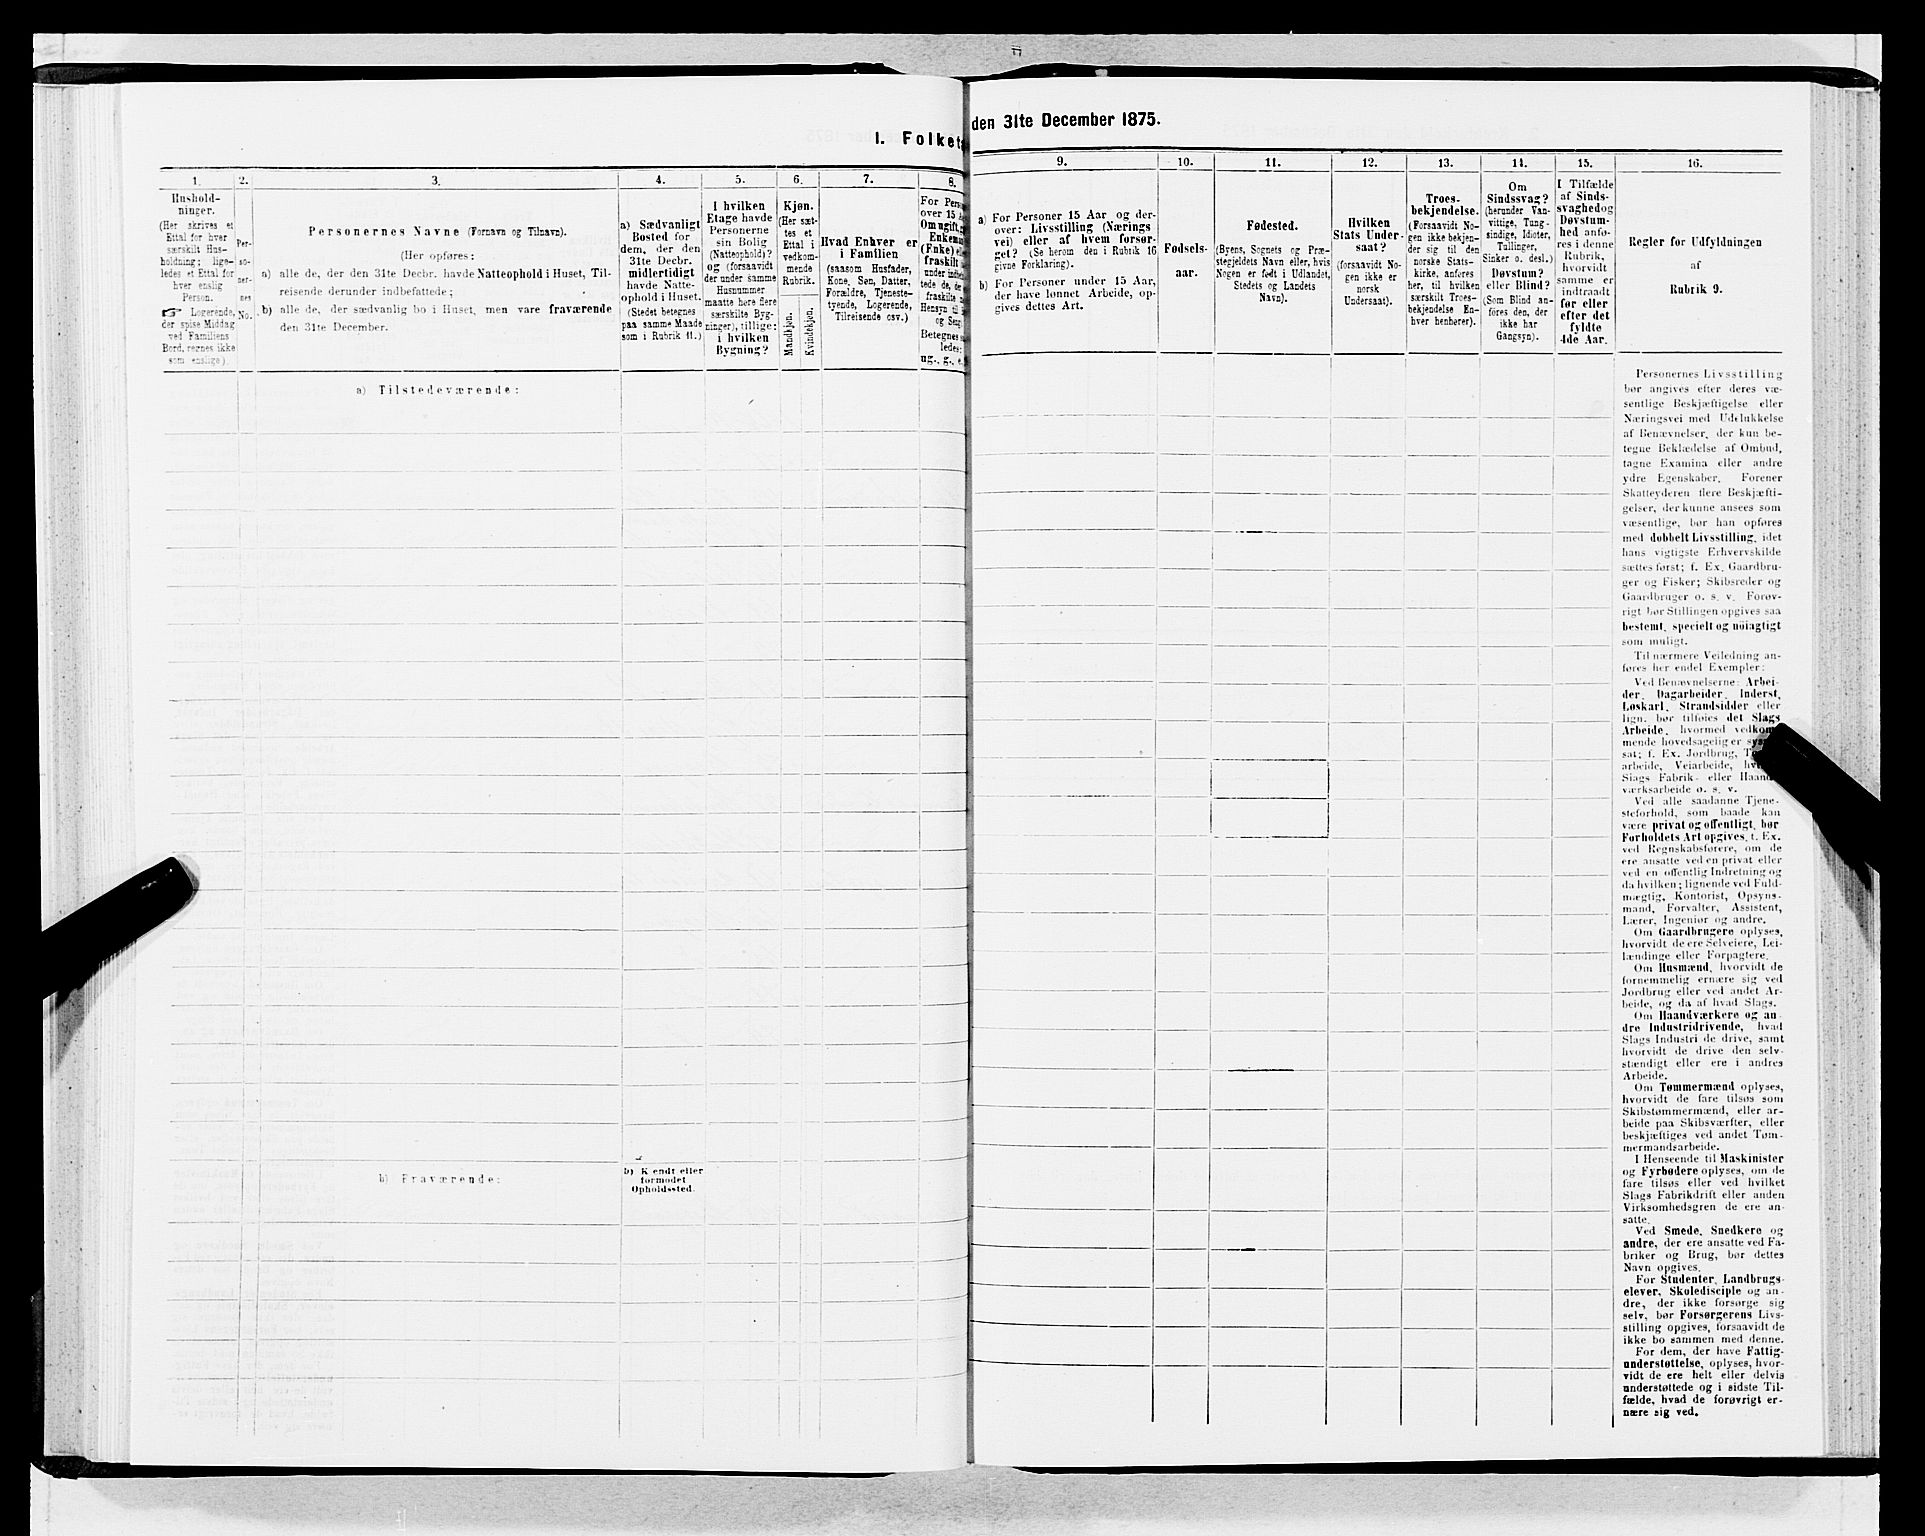 I. Folket
den 31te December 1875.
1.
Hushold-
ninger.
(Her skrives et
Ettal for hver
særskilt Hus-
holdning; lige-
ledes et Ettal for
hver enslig
Person.
☞ Logerende,
der spise Middag
ved Familiens
Bord, regnes ikke
som enslige).
2.
Per-
so-
ner-
nes
No.
3.
Personernes Navne (Fornavn og Tilnavn).
(Her opføres:
a) alle de, der den 31te Decbr. havde Natteophold i Huset, Til-
reisende derunder indbefattede;
b) alle de, der sædvanlig bo i Huset, men vare fraværende
den 31te December.
4.
a) Sædvanligt
Bosted for
dem, der den
31te Decbr.
midlertidigt
havde Natte-
ophold i Huset.
(Stedet betegnes
paa samme Maade
som i Rubrik 11.)
5.
I hvilken
Etage havde
Personerne
sin Bolig
(Natteophold)?
og (forsaavidt
der under samme
Husnummer
maatte høre flere
særskilte Byg-
ninger), tillige:
i hvilken
Bygning?
6.
Kjøn.
(Her sæt-
tes et
Ettal i
vedkom-
mende
Rubrik.
Mandkjøn.
Kvindekjøn.
7.
Hvad Enhver er
i Familien
(saasom Husfader,
Kone, Søn, Datter,
Forældre, Tjeneste-
tyende, Logerende,
Tilreisende osv.)
8.
For Pers
over 15 A
Om ugift, g
Enkem
(Enke) e
fraskilt
under indb
tede de, de
fraskilte
Hensyn til
og Seng
Betegnes
ledes:
ug., g., e.
9.
a) For Personer 15 Aar og der-
over: Livsstilling (Nærings
vei) eller af hvem forsør-
get? (Se herom den i Rubrik 16
givne Forklaring).
b) For Personer under 15 Aar,
der have lønnet Arbeide, op-
gives dettes Art.
10.
Fødsels-
aar.
11.
Fødested.
(Byens, Sognets og Præ-
stegjeldets Navn eller, hvis
Nogen er født i Udlandet,
Stedets og Landets
Navn).
12.
Hvilken
Stats Under-
saat?
(forsaavidt No-
gen ikke er
norsk
Undersaat).
13.
Troes-
bekjendelse.
(Forsaavidt No-
gen ikke bekjen-
der sig til den
norske Stats-
kirke, anføres
her, til hvilken
særskilt Troes-
bekjendelse En-
hver henhører).
14.
Om
Sindssvag?
(herunder Van-
vittige, Tung-
sindige, Idioter,
Tullinger,
Sinker o. desl.)
Døvstum?
eller Blind?
(Som Blind an-
føres den, der
ikke har
Gangsyn).
15.
I Tilfælde
af Sinds-
svaghed og
Døvstum-
hed anfø-
res i denne
Rubrik,
hvorvidt
samme er
indtraadt
før eller
efter det
fyldte
4de Aar.
16.
Regler for Udfyldningen
af
Rubrik 9.
a) Tilstedeværende:
b) Fraværende:
b) Kjendt eller
formodet
Opholdssted.
Personernes Livsstilling
bør angives efter deres væ-
sentlige Beskjæftigelse eller
Næringsvei med Udelukkelse
af Benævnelser, der kun be-
tegne Beklædelse af Ombud,
tagne Examina eller andre
ydre Egenskaber. Forener
Skatteyderen flere Beskjæfti-
gelser, der kunne ansees som
væsentlige, bør han opføres
med dobbelt Livsstilling, idet
hans vigtigste Erhvervskilde
sættes først; f. Ex. Gaardbru-
ger og Fisker; Skibsreder og
Gaardbruger o. s. v. Forøv-
rigt bør Stillingen opgives saa
bestemt, specielt og nøiagtigt
som muligt.
Til nærmere Veiledning an-
føres her endel Exempler:
Ved Benævnelserne: Arbei-
der, Dagarbeider, Inderst,
Løskarl, Strandsidder eller
lign. bør tilføies det Slags
Arbeide, hvormed vedkom-
mende hovedsagelig er
sat; f. Ex. Jordbrug,
arbeide, Veiarbeide,
Slags Fabrik- eller Haand-
værksarbeide o. s. v.
Ved alle saadanne Tjene-
steforhold, som baade kan
være privat og offentligt, bør
Forholdets Art opgives, t. Ex.
ved Regnskabsførere, om de
ere ansatte ved en privat eller
ved en offentlig Indretning og
da hvilken; lignende ved Fuld-
mægtig, Kontorist, Opsyns-
mand, Forvalter, Assistent,
Lærer, Ingeniør og andre.
Om Gaardbrugere oplyses,
hvorvidt de ere Selveiere, Lei-
lændinge eller Forpagtere.
Om Husmænd, hvorvidt de
fornemmelig ernære sig ved
Jordbrug eller ved andet Ar-
beide, og da af hvad Slags.
Om Haandværkere og an-
dre Industridrivende, hvad
Slags Industri de drive, samt
hvorvidt de drive den selv-
stændigt eller ere i andres
Arbeide.
Om Tømmermænd oplyses,
hvorvidt de fare tilsøs som
Skibstømmermænd, eller ar-
beide paa Skibsværfter, eller
beskjæftiges ved andet Tøm-
mermandsarbeide.
I Henseende til Maskinister
og Fyrbødere oplyses, om de
fare tilsøs eller ved hvilket
Slags Fabrikdrift eller anden
Virksomhedsgren de ere an-
satte.
Ved Smede, Snedkere og
andre, der ere ansatte ved Fa-
briker og Brug, bør dettes
Navn opgives.
For Studenter, Landbrugs-
elever, Skoledisciple og an-
dre, der ikke forsørge sig
selv, bør Forsørgerens Livs-
stilling opgives, forsaavidt de
ikke bo sammen med denne.
For dem, der have Fattig-
understøttelse, oplyses, hvor-
vidt de ere helt eller delvis
understøttede og i sidste Til-
fælde, hvad de forøvrigt er-
nære sig ved.